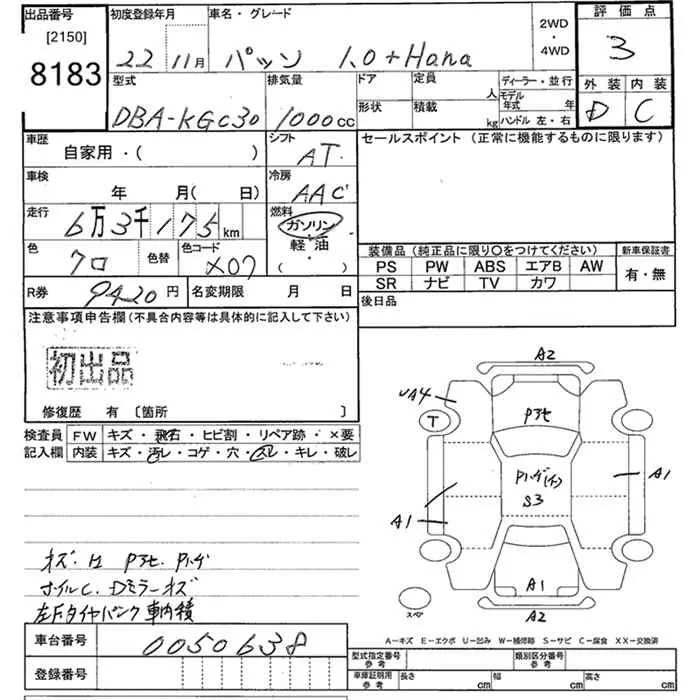 出品番号
[2150]
8183
初度登録年月
22 11月
車名・グレード
パッソ 1.0+Hana
2WD
・
4WD
評価点
3
型式
DBA-KGC30
排気量
1000cc
ドア
形状
定員 人
積載 kg
ディーラー・並行
モデル
年式 年
ハンドル 左・右
外装
D
内装
C
車歴
自家用・( )
シフト
AT
セールスポイント (正常に機能するものに限ります)
車検
年 月( 日)
冷房
AAC
走行
6万3千175km
燃料
ガソリン
軽・油
( ・ )
色
クロ
色替
色コード
X07
装備品 (純正品に限り○をつけてください)
新車保証書
PS PW ABS エアB AW
SR ナビ TV カワ
有・無
R券 9420円
名変期限 月 日
後日品
注意事項申告欄 (不具合内容等は具体的に記入して下さい)
初出品
修復歴 有 〔箇所 〕
検査員
記入欄
FW キズ・飛石・ヒビ割・リペア跡・×要
内装 キズ・汚レ・コゲ・穴・スレ・キレ・破レ
P ハゲ
ホイルC. Dミラーキズ
左Fタイヤパンク 車内積
A2
A4
T
A1
S3
A1
A1
A2
スペ
A-キズ E-エクボ U-凹み W-補修跡 S-サビ C-腐食 XX-交換済
車台番号
0050638
登録番号
型式指定番号
参考
類別区分番号
参考
車庫証明用
参考
長さ cm
幅 cm
高さ cm